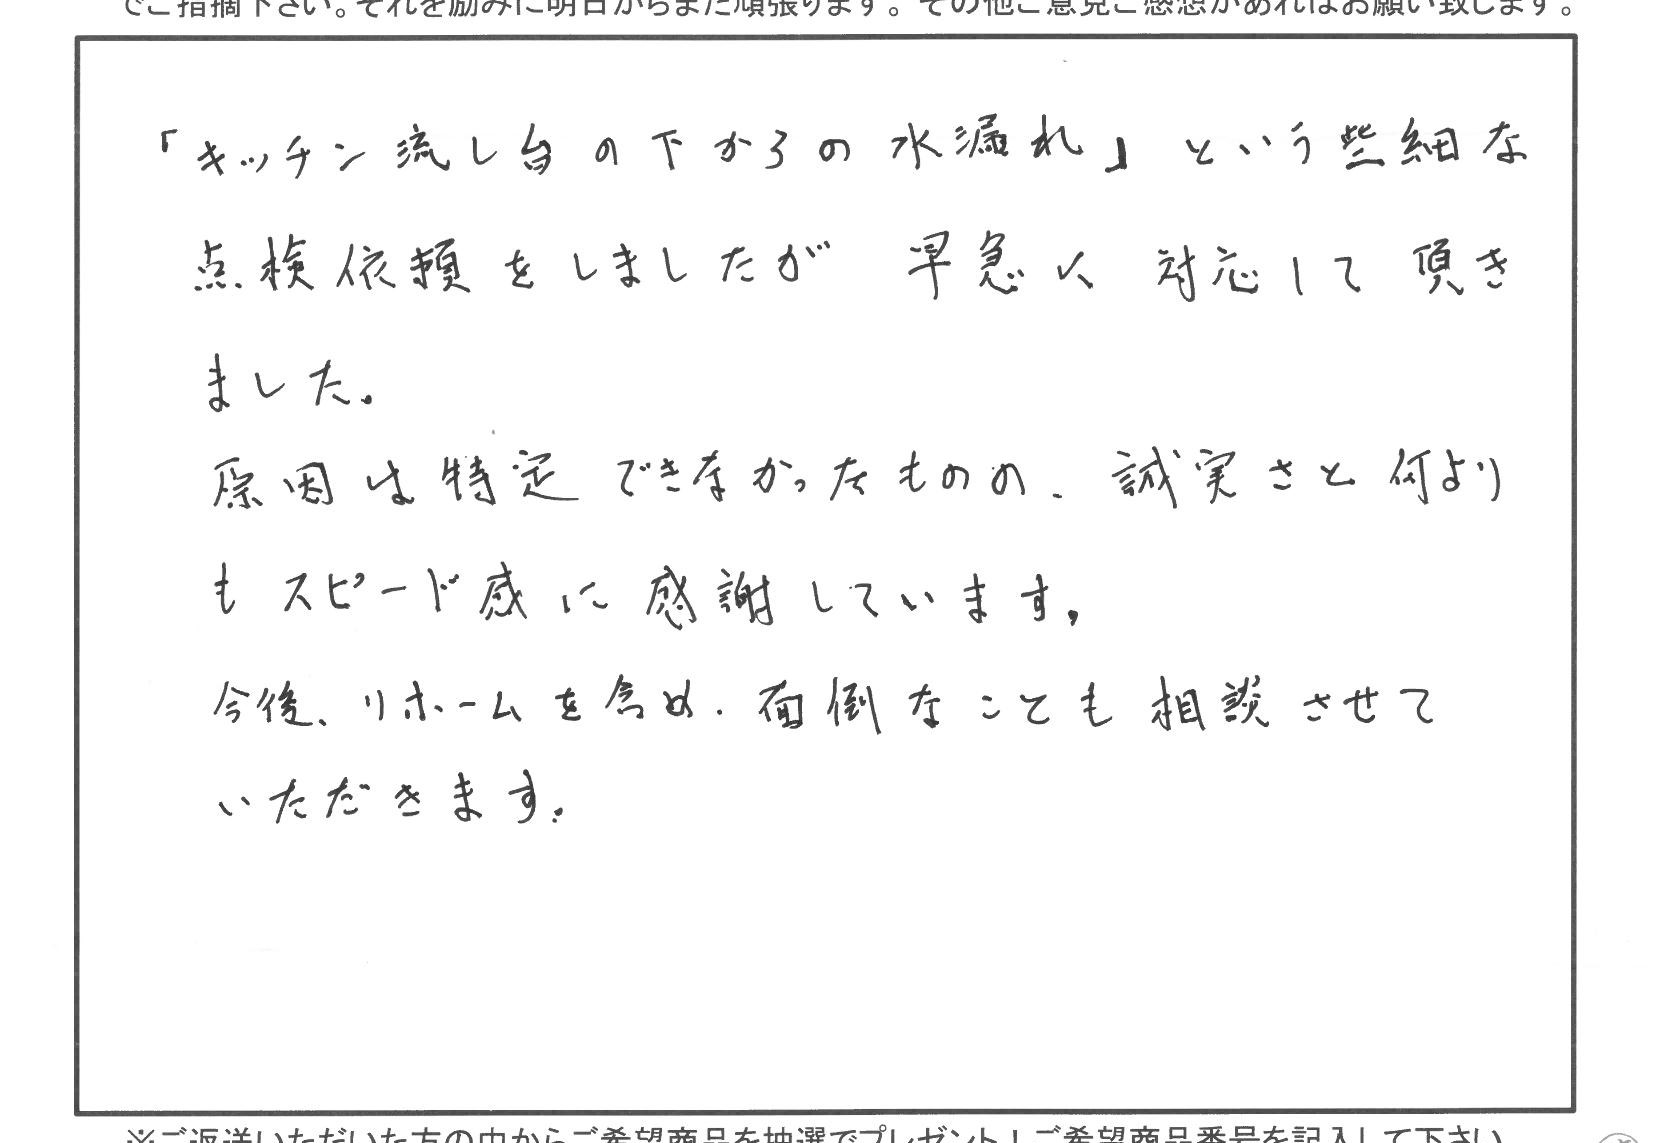 でご指摘下さい。それを励みに明日からまた頑張ります。その他ご意見ご感想があればお願い致します。
「キッチン流し台の下からの水漏れ」という些細な
点検依頼をしましたが 早急に対応して頂き
ました。
原因は特定できなかったものの、誠実さと何より
もスピード感に感謝しています。
今後、リホームを含め、面倒なことも相談させて
いただきます。
※ご返送いただいた方の中からご希望商品を抽選でプレゼント！ご希望商品番号を記入して下さい